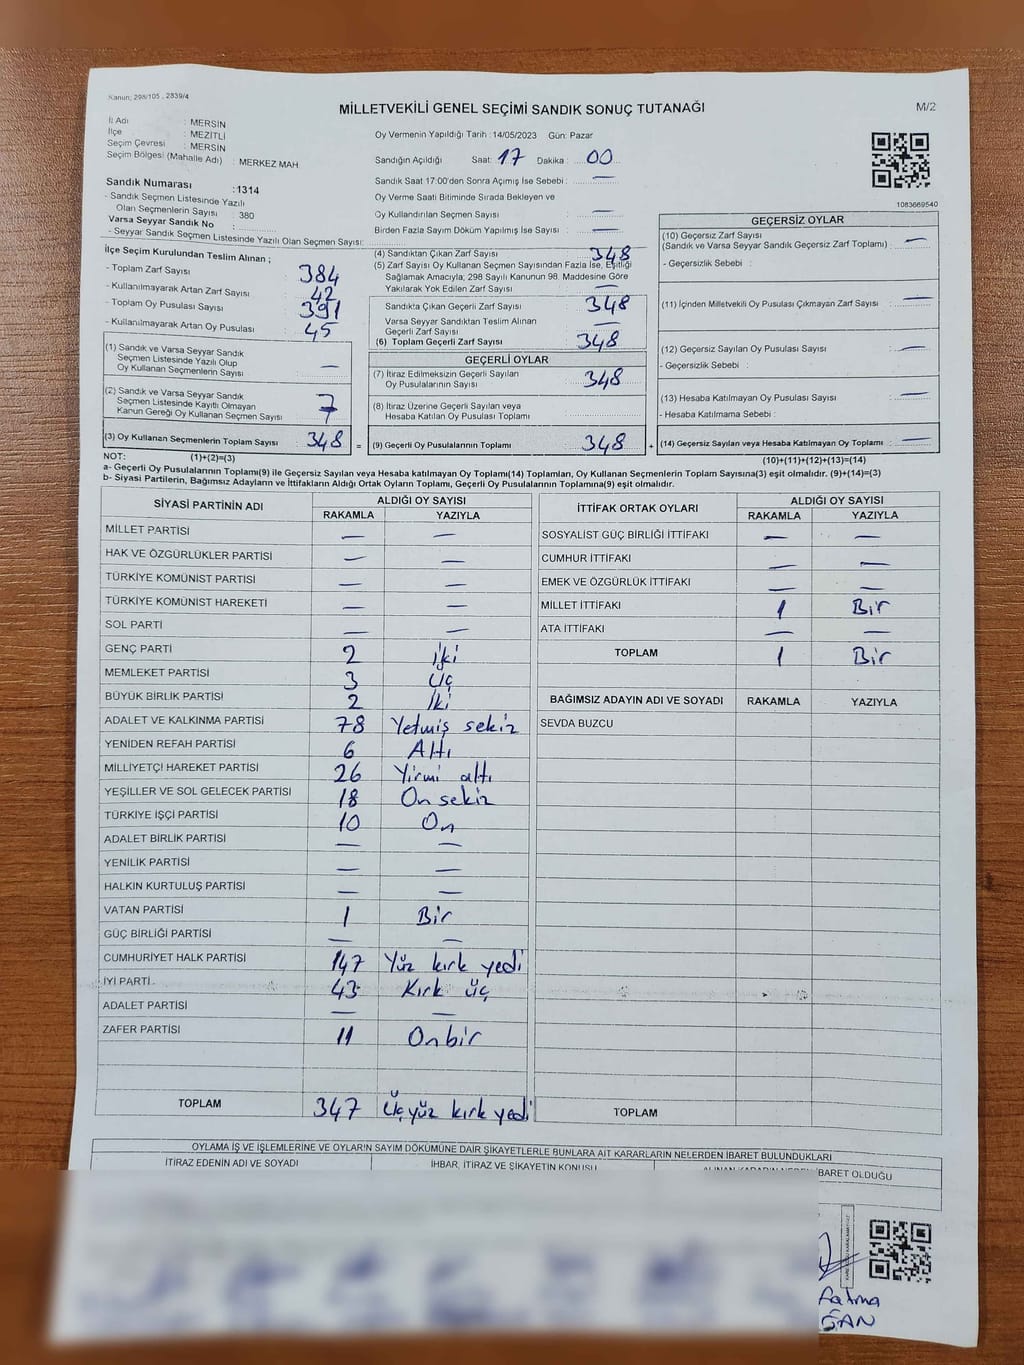 Kanun; 298/105 , 2839/4
MİLLETVEKİLİ GENEL SEÇİMİ SANDIK SONUÇ TUTANAĞI
M/2
İl Adı : MERSİN
İlçe : MEZİTLİ
Seçim Çevresi : MERSİN
Seçim Bölgesi (Mahalle Adı) : MERKEZ MAH
Oy Vermenin Yapıldığı Tarih : 14/05/2023 Gün: Pazar
Sandığın Açıldığı Saat: 17 Dakika : 00
Sandık Saat 17:00'den Sonra Açımış İse Sebebi : —
Oy Verme Saati Bitiminde Sırada Bekleyen ve
Oy Kullandırılan Seçmen Sayısı : —
Birden Fazla Sayım Döküm Yapılmış İse Sayısı : —
1083669540
Sandık Numarası :1314
- Sandık Seçmen Listesinde Yazılı
Olan Seçmenlerin Sayısı : 380
Varsa Seyyar Sandık No :
- Seyyar Sandık Seçmen Listesinde Yazılı Olan Seçmen Sayısı:
İlçe Seçim Kurulundan Teslim Alınan ;
- Toplam Zarf Sayısı : 384
- Kullanılmayarak Artan Zarf Sayısı : 42
- Toplam Oy Pusulası Sayısı : 391
- Kullanılmayarak Artan Oy Pusulası : 45
(1) Sandık ve Varsa Seyyar Sandık
Seçmen Listesinde Yazılı Olup
Oy Kullanan Seçmenlerin Sayısı : —
(2) Sandık ve Varsa Seyyar Sandık
Seçmen Listesinde Kayıtlı Olmayan
Kanun Gereği Oy Kullanan Seçmen Sayısı : 7
(3) Oy Kullanan Seçmenlerin Toplam Sayısı : 348 =
(4) Sandıktan Çıkan Zarf Sayısı : 348
(5) Zarf Sayısı Oy Kullanan Seçmen Sayısından Fazla İse, Eşitliği
Sağlamak Amacıyla; 298 Sayılı Kanunun 98. Maddesine Göre
Yakılarak Yok Edilen Zarf Sayısı : —
Sandıkta Çıkan Geçerli Zarf Sayısı : 348
Varsa Seyyar Sandıktan Teslim Alınan
Geçerli Zarf Sayısı : —
(6) Toplam Geçerli Zarf Sayısı : 348
GEÇERLİ OYLAR
(7) İtiraz Edilmeksizin Geçerli Sayılan
Oy Pusulalarının Sayısı : 348
(8) İtiraz Üzerine Geçerli Sayılan veya
Hesaba Katılan Oy Pusulası Toplamı :
(9) Geçerli Oy Pusulalarının Toplamı : 348 +
GEÇERSİZ OYLAR
(10) Geçersiz Zarf Sayısı : —
(Sandık ve Varsa Seyyar Sandık Geçersiz Zarf Toplamı)
- Geçersizlik Sebebi :
(11) İçinden Milletvekili Oy Pusulası Çıkmayan Zarf Sayısı : —
(12) Geçersiz Sayılan Oy Pusulası Sayısı : —
- Geçersizlik Sebebi :
(13) Hesaba Katılmayan Oy Pusulası Sayısı : —
- Hesaba Katılmama Sebebi :
(14) Geçersiz Sayılan veya Hesaba Katılmayan Oy Toplamı : —
NOT: (1)+(2)=(3)
(10)+(11)+(12)+(13)=(14)
a- Geçerli Oy Pusulalarının Toplamı(9) ile Geçersiz Sayılan veya Hesaba katılmayan Oy Toplamı(14) Toplamları, Oy Kullanan Seçmenlerin Toplam Sayısına(3) eşit olmalıdır. (9)+(14)=(3)
b- Siyasi Partilerin, Bağımsız Adayların ve İttifakların Aldığı Ortak Oyların Toplamı, Geçerli Oy Pusulalarının Toplamına(9) eşit olmalıdır.
SİYASİ PARTİNİN ADI ALDIĞI OY SAYISI
RAKAMLA YAZIYLA
MİLLET PARTİSİ — —
HAK VE ÖZGÜRLÜKLER PARTİSİ — —
TÜRKİYE KOMÜNİST PARTİSİ — —
TÜRKİYE KOMÜNİST HAREKETİ — —
SOL PARTİ — —
GENÇ PARTİ 2 İki
MEMLEKET PARTİSİ 3 Üç
BÜYÜK BİRLİK PARTİSİ 2 İki
ADALET VE KALKINMA PARTİSİ 78 Yetmiş sekiz
YENİDEN REFAH PARTİSİ 6 Altı
MİLLİYETÇİ HAREKET PARTİSİ 26 Yirmi altı
YEŞİLLER VE SOL GELECEK PARTİSİ 18 On sekiz
TÜRKİYE İŞÇİ PARTİSİ 10 On
ADALET BİRLİK PARTİSİ — —
YENİLİK PARTİSİ — —
HALKIN KURTULUŞ PARTİSİ — —
VATAN PARTİSİ 1 Bir
GÜÇ BİRLİĞİ PARTİSİ — —
CUMHURİYET HALK PARTİSİ 147 Yüz kırk yedi
İYİ PARTİ 43 Kırk üç
ADALET PARTİSİ — —
ZAFER PARTİSİ 11 Onbir
TOPLAM 347 Üçyüz kırk yedi
İTTİFAK ORTAK OYLARI ALDIĞI OY SAYISI
RAKAMLA YAZIYLA
SOSYALİST GÜÇ BİRLİĞİ İTTİFAKI — —
CUMHUR İTTİFAKI — —
EMEK VE ÖZGÜRLÜK İTTİFAKI — —
MİLLET İTTİFAKI 1 Bir
ATA İTTİFAKI — —
TOPLAM 1 Bir
BAĞIMSIZ ADAYIN ADI VE SOYADI RAKAMLA YAZIYLA
SEVDA BUZCU
TOPLAM
OYLAMA İŞ VE İŞLEMLERİNE VE OYLARIN SAYIM DÖKÜMÜNE DAİR ŞİKAYETLERLE BUNLARA AİT KARARLARIN NELERDEN İBARET BULUNDUKLARI
İTİRAZ EDENİN ADI VE SOYADI İHBAR, İTİRAZ VE ŞİKAYETİN KONUSU ALINAN KARARIN NEDEN İBARET OLDUĞU
Fatma